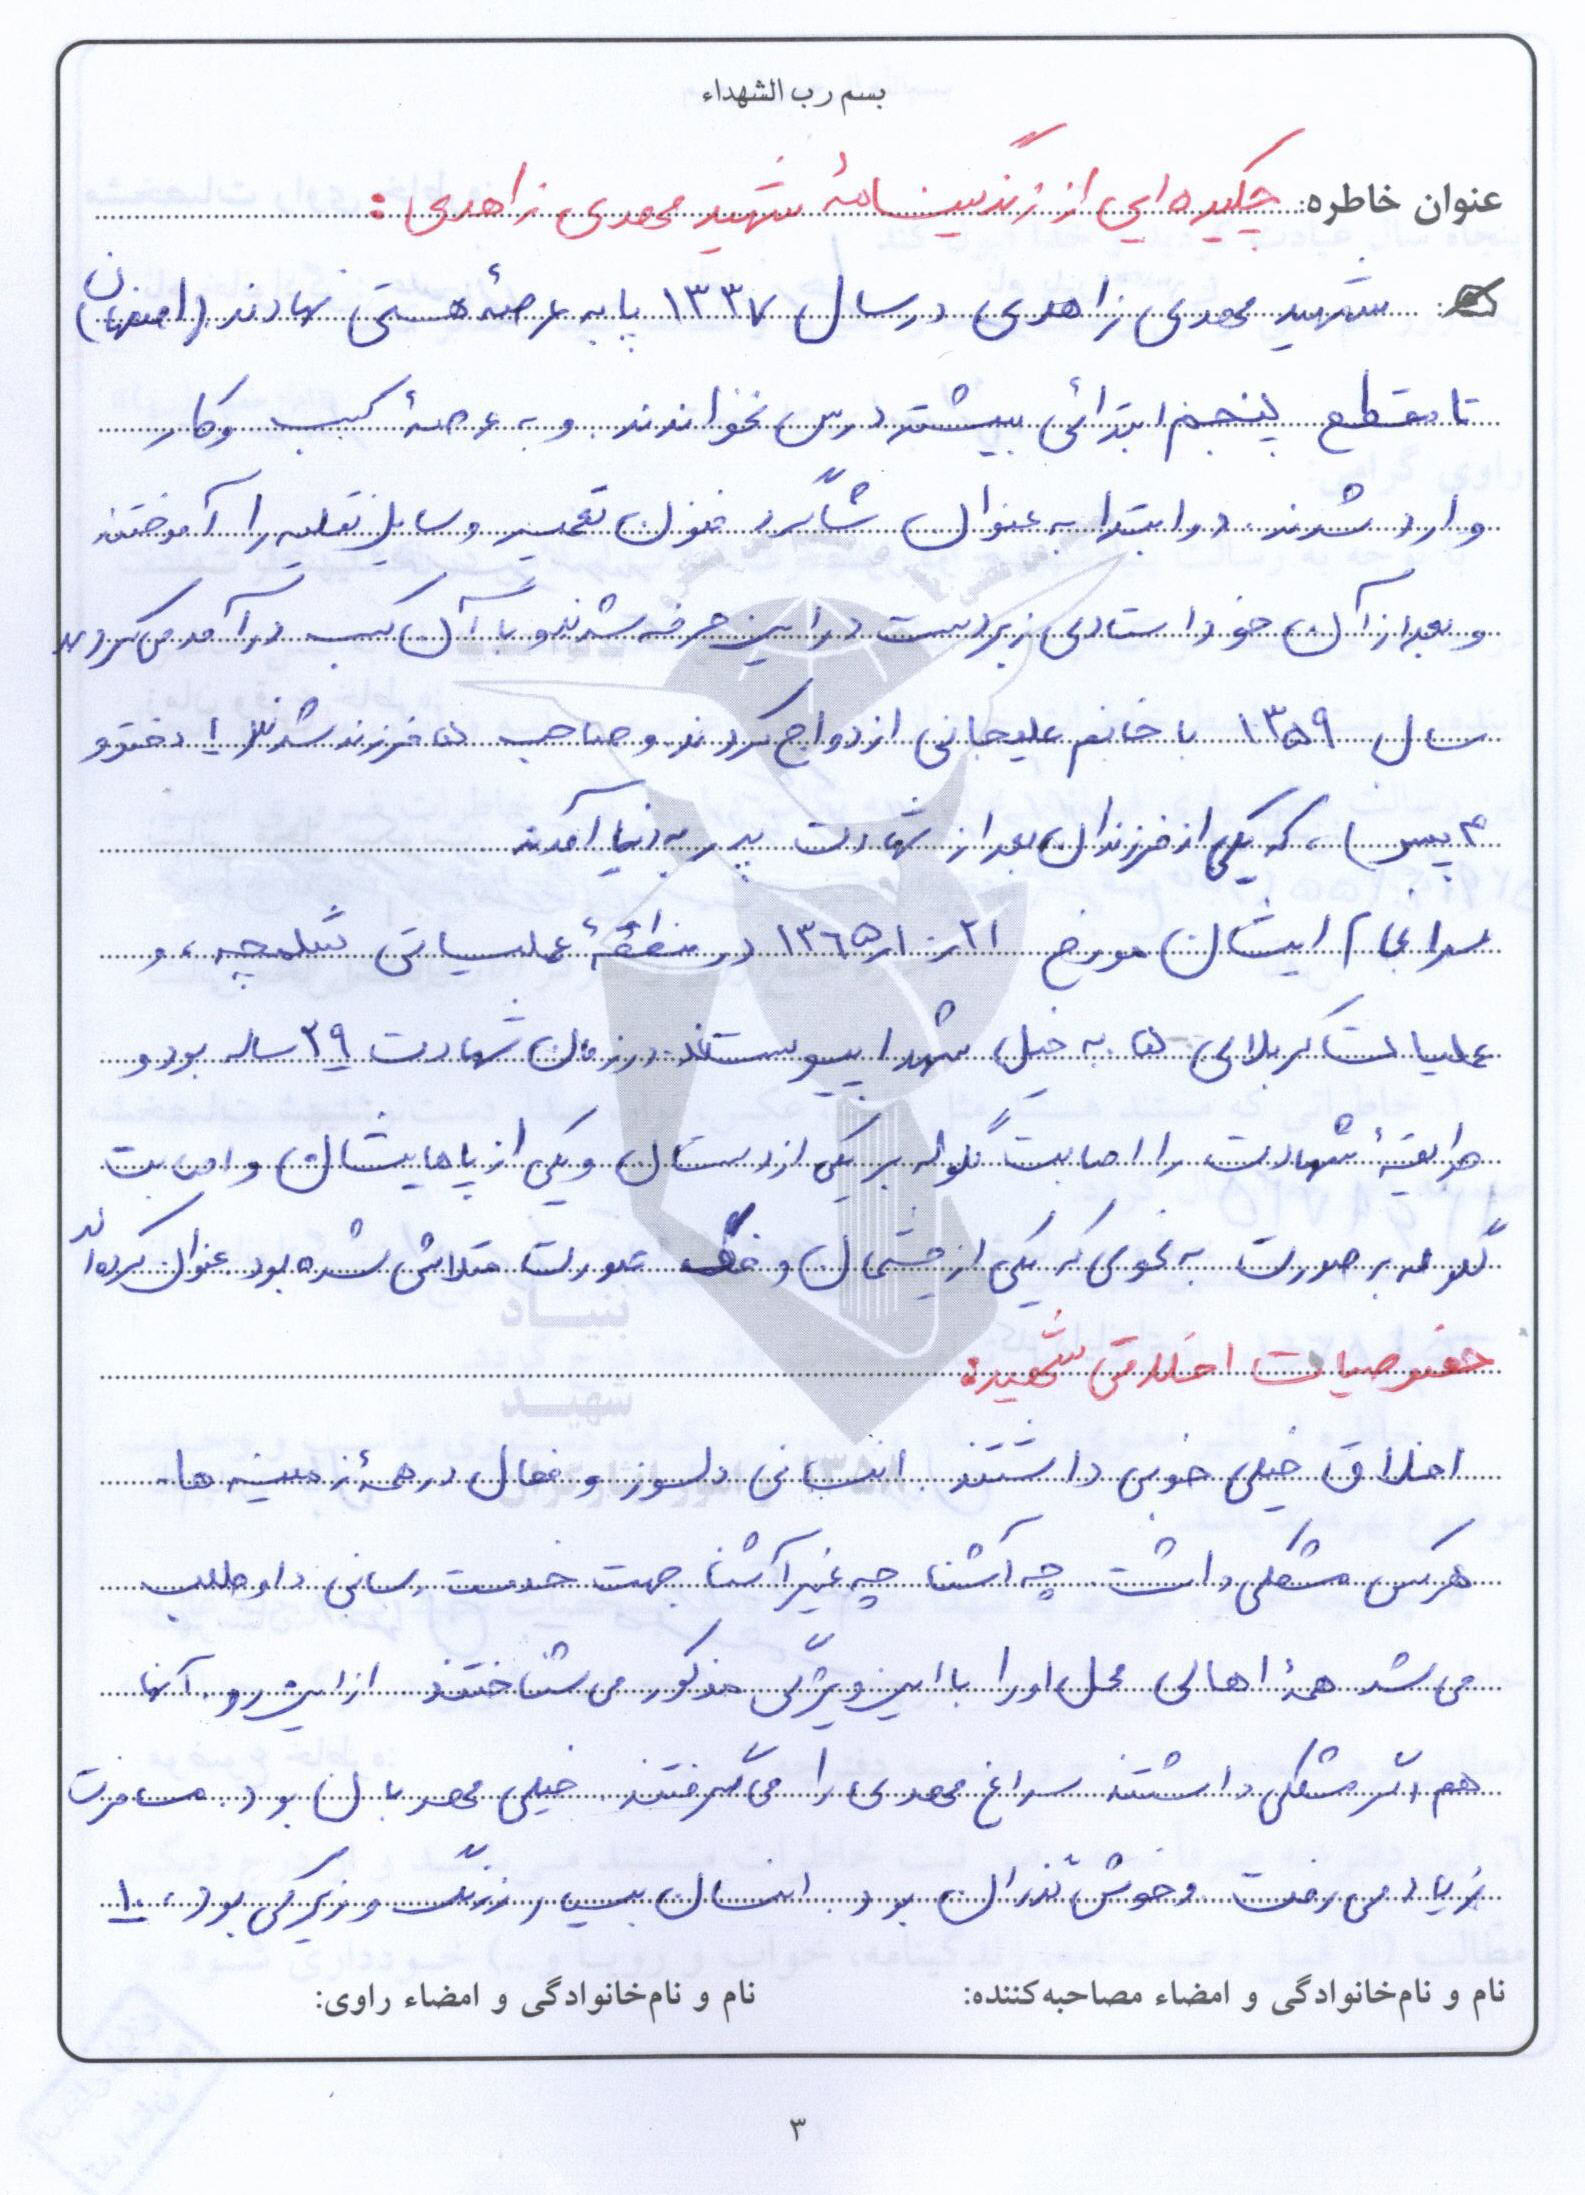 بسم رب الشهداء
عنوان خاطره: چکیده ایی از زندگینامهٔ شهید مهدی زاهدی:
شهید مهدی زاهدی در سال ۱۳۳۷ پا به عرصهٔ هستی نهادند (اصفهان)
تا مقطع پنجم ابتدائی بیشتر درس نخواندند. و به عرصهٔ کسب و کار
وارد شدند. در ابتدا به عنوان شاگرد فنون تعمیر وسایل نقلیه را آموختند
و بعد از آن خود استادی زبردست در این حرفه شدند و با آن کسب درآمد می کردند
سال ۱۳۵۹ با خانم علیجانی ازدواج کردند و صاحب ۵ فرزند شدند (۱ دختر و
۴ پسر)، که یکی از فرزندان بعد از شهادت پدر به دنیا آمدند
سرانجام ایشان مورخ ۲۱ر۱۰ر۱۳۶۵ در منطقهٔ عملیاتی شلمچه، و
عملیات کربلای ۵ به خیل شهدا پیوستند. در زمان شهادت ۲۹ ساله بود و
طریقهٔ شهادت را اصابت گلوله بر یکی از دستان و یکی از پاهایشان و اصابت
گلوله بر صورت به نحوی که یکی از چشمان و فک صورت متلاشی شده بود عنوان کرده اند
خصوصیات اخلاقی شهید:
اخلاق خیلی خوبی داشتند. انسانی دلسوز و فعال در همهٔ زمینه ها.
هر کس مشکلی داشت. چه آشنا چه غیر آشنا جهت خدمت رسانی داوطلب
می شد همهٔ اهالی محل او را با این ویژگی مذکور می شناختند از این رو. آنها
هم اگر مشکلی داشتند سراغ مهدی را می گرفتند. خیلی مهربان بود. مسافرت
زیاد می رفت و خوش گذران بود. انسان بسیار زرنگ و زیرکی بود،
نام و نام‌خانوادگی و امضاء مصاحبه‌کننده: نام و نام‌خانوادگی و امضاء راوی:
۳
بنیاد
شهید
و امور ایثارگران